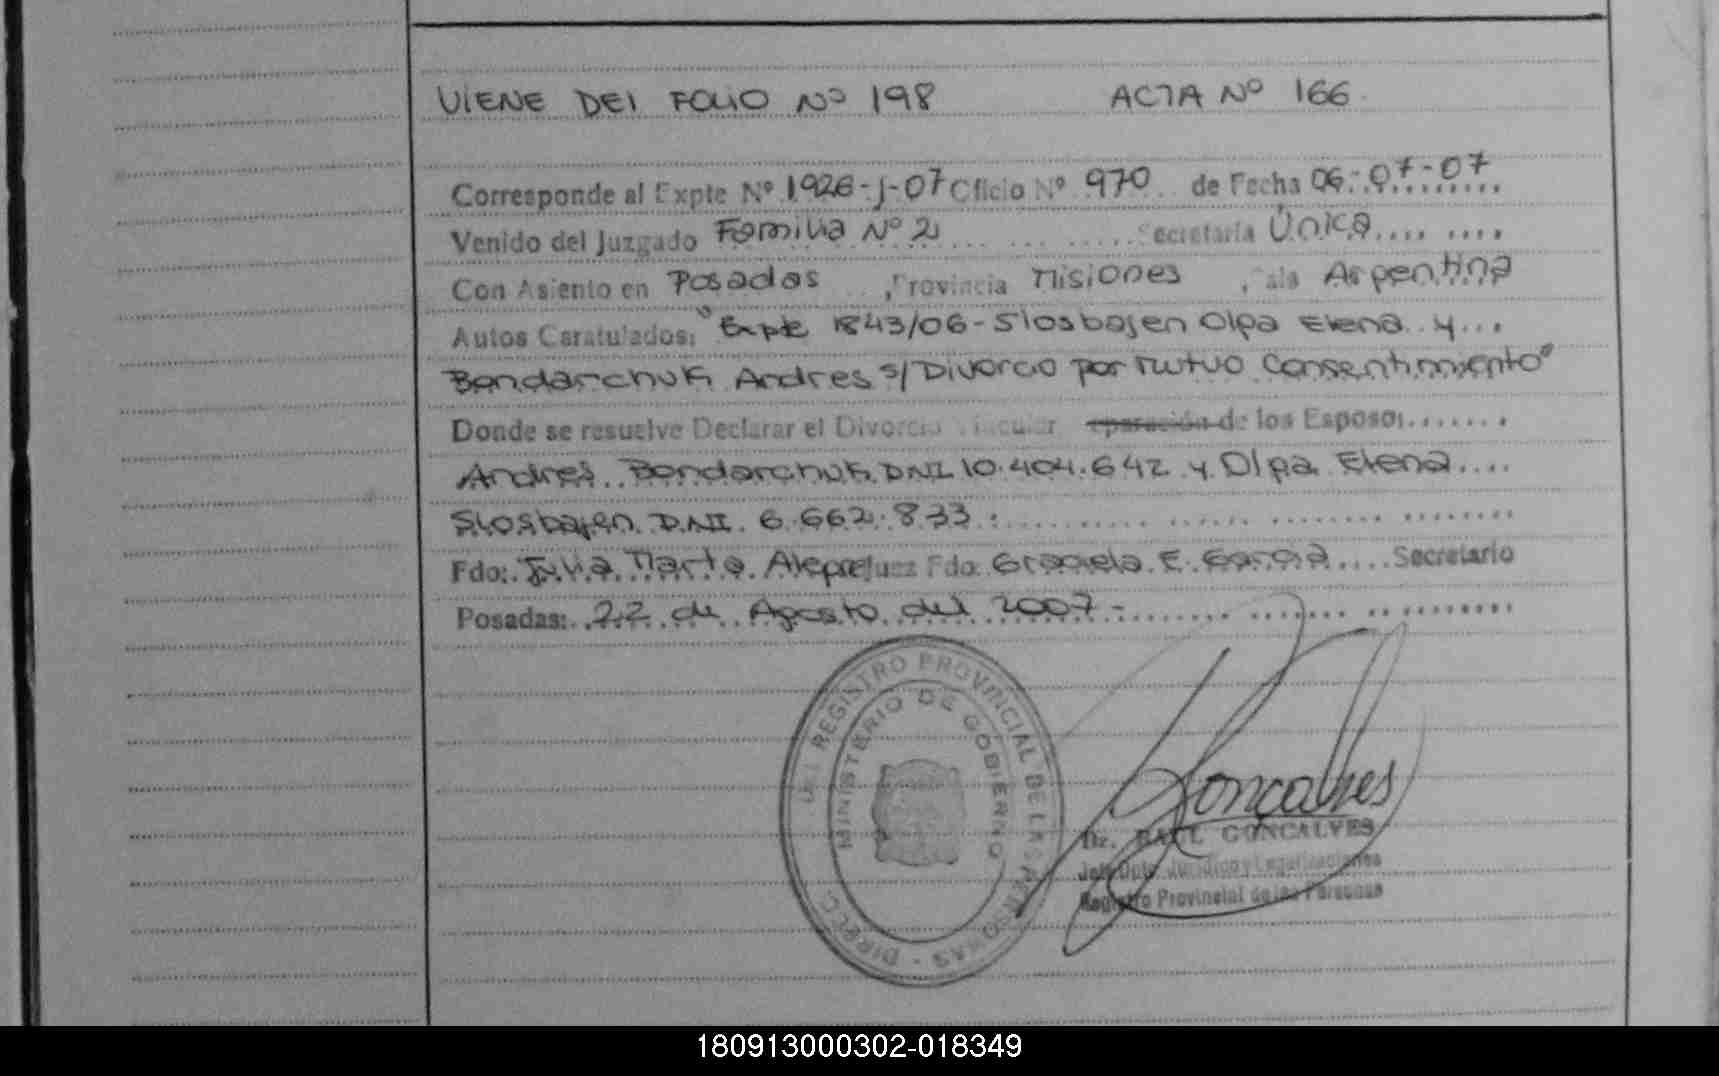 VIENE DEl FOLIO Nº 198 ACTA Nº 166
Corresponde al Expte Nº 1926-J-07 Oficio Nº 970 de Fecha 06-07-07
Venido del Juzgado Familia Nº 2 Secretaría Única
Con Asiento en Posadas, Provincia Misiones, País Argentina
Autos Caratulados: "Expte 1843/06 - Slosbajen Olga Elena y
Bondarchuk Andres s/ Divorcio por Mutuo Consentimiento"
Donde se resuelve Declarar el Divorcio Vincular eparación de los Esposos
Andres Bondarchuk DNI 10.404.642 y Olga Elena
Slosbajen DNI 6.662.833.
Fdo: Julia Marta Alegre Juez Fdo: Graciela E. Garcia Secretario
Posadas: 22 de Agosto del 2007-
DIRECC. DEL REGISTRO PROVINCIAL DE LAS PERSONAS
MINISTERIO DE GOBIERNO
Goncalves
Dr. RAUL GONCALVES
Jefe Dpto. Jurídico y Legalizaciones
Registro Provincial de las Personas
180913000302-018349